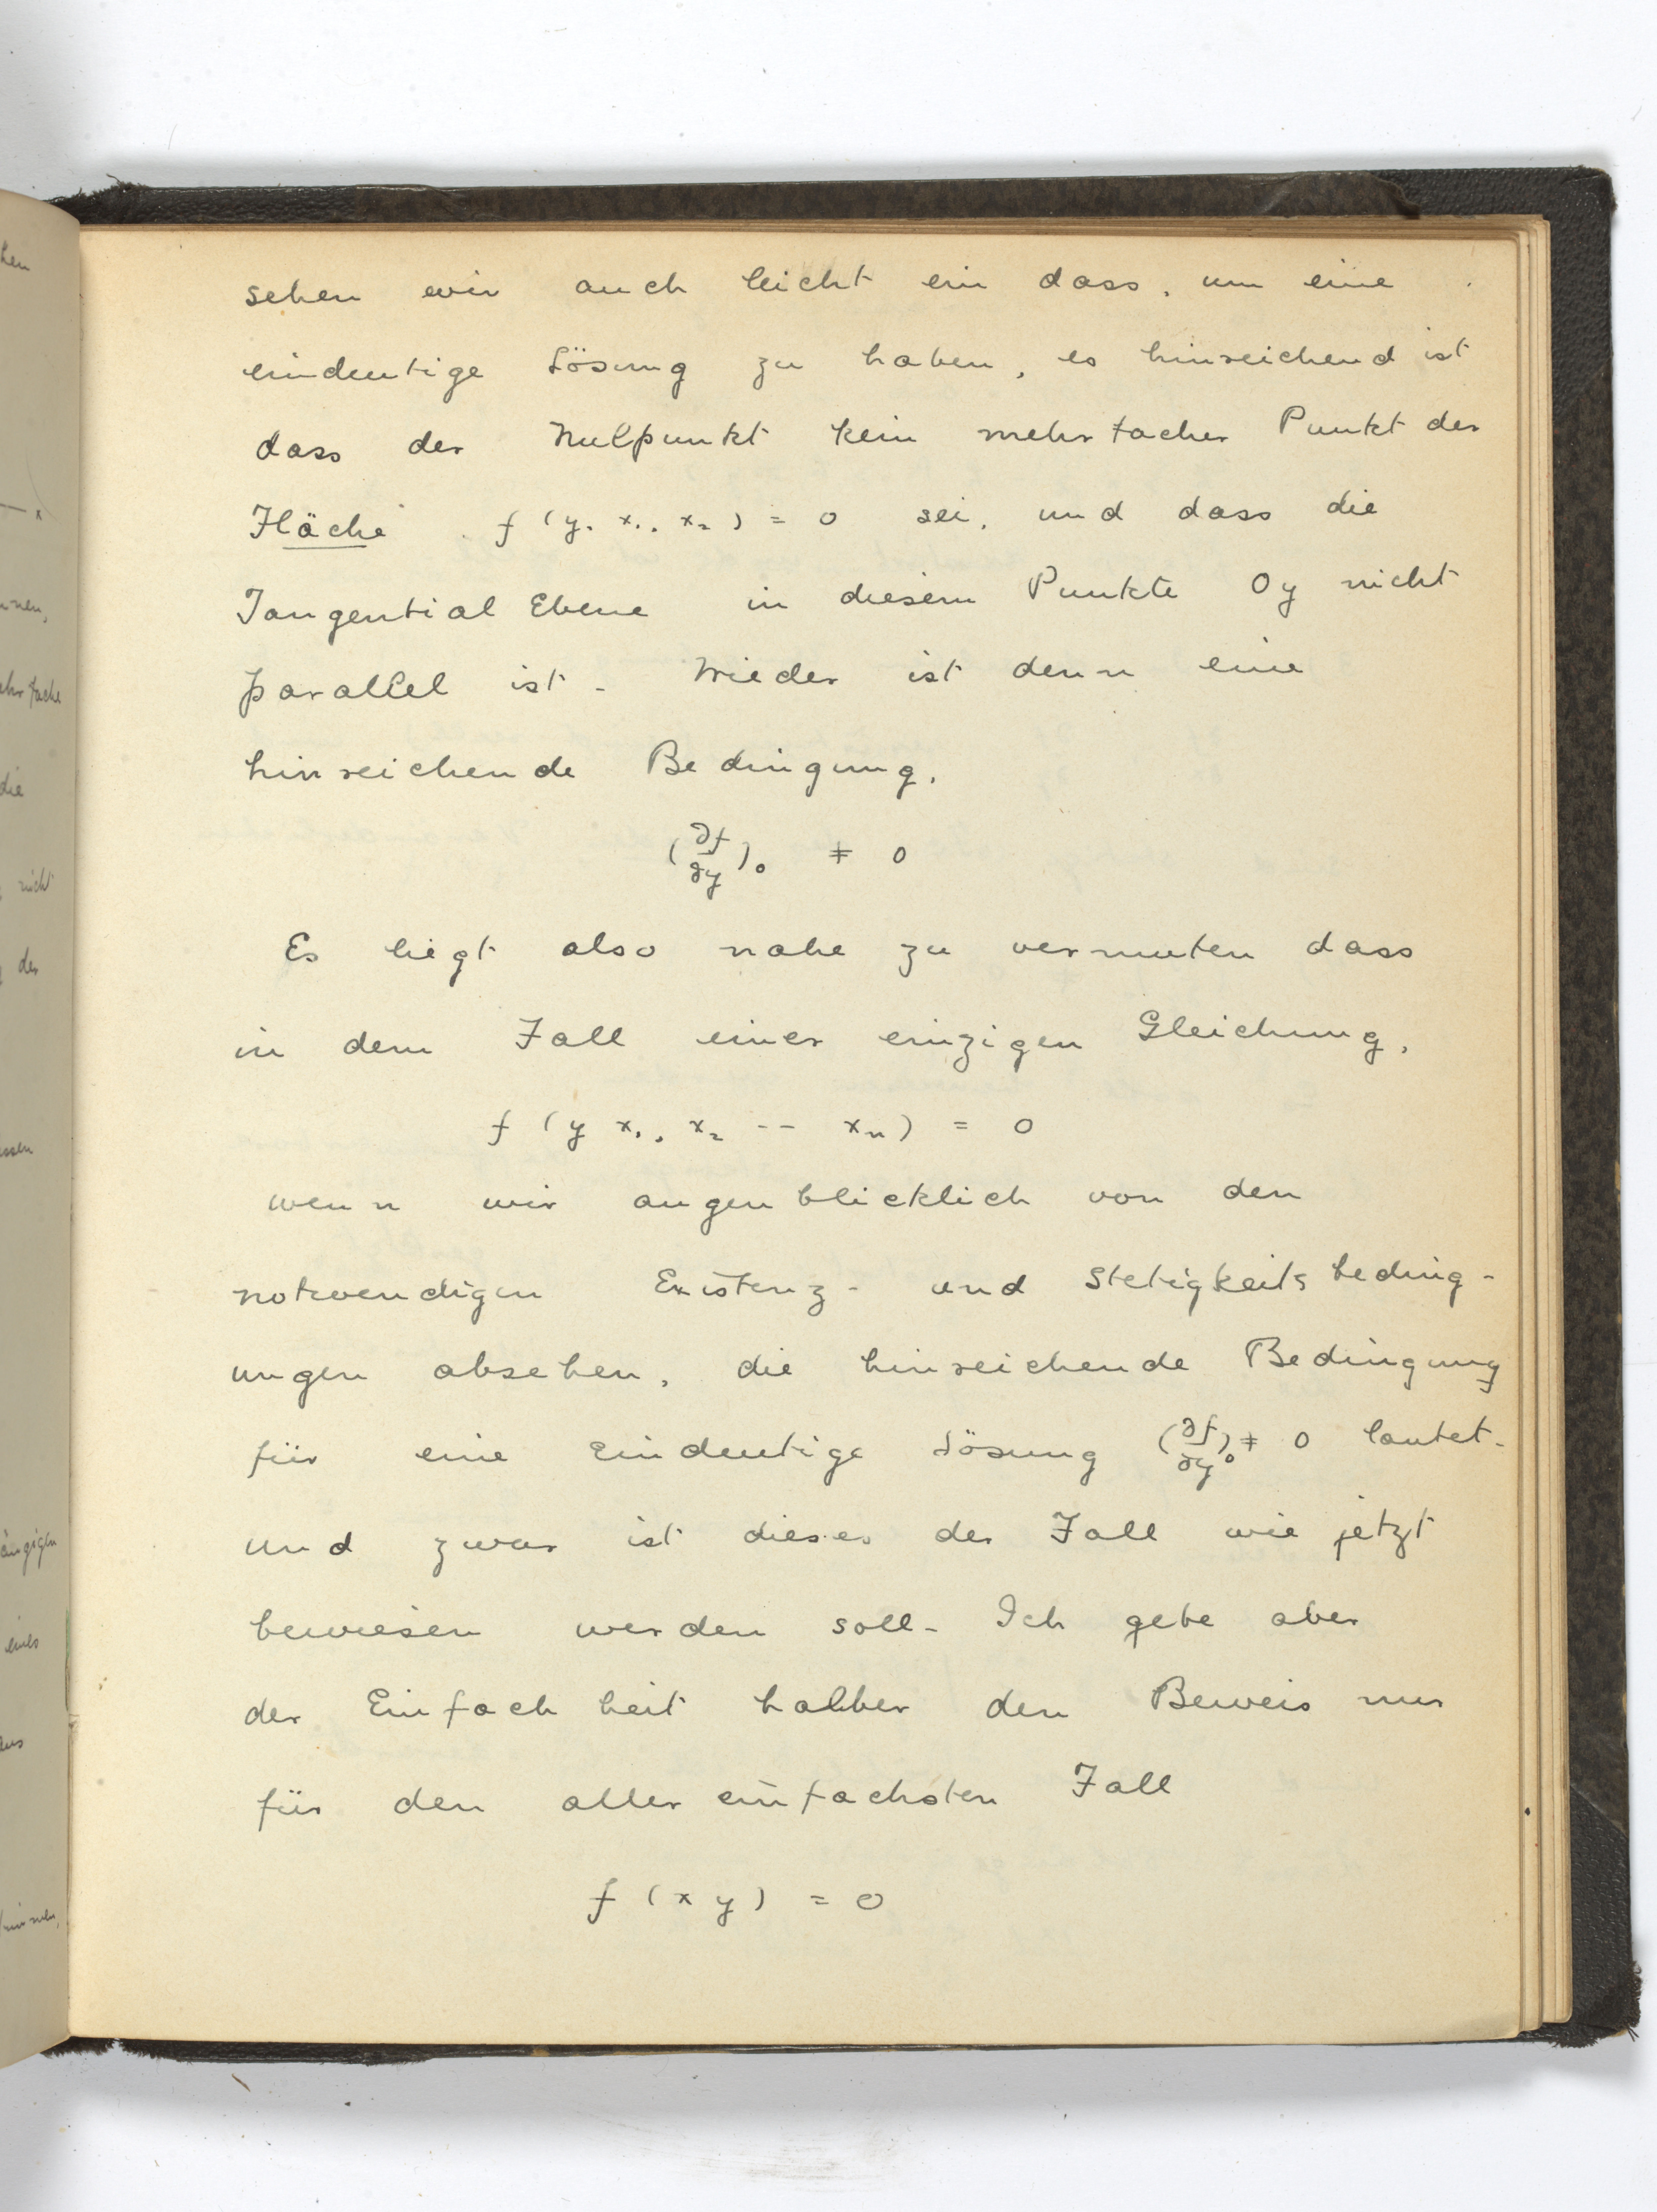 sehen wir auch leicht ein dass, um eine
eindeutige Lösung zu haben, es hinreichend ist
dass der Nulpunkt kein mehrfacher Punkt der
Fläche f (y, x₁, x₂) = 0 sei, und dass die
Tangential Ebene in diesem Punkte Oy nicht
parallel ist - Wieder ist denn eine
hinreichende Bedingung,
(∂f/∂y)₀ ≠ 0
Es liegt also nahe zu vermuten dass
in dem Fall einer einzigen Gleichung,
f (y x₁, x₂ -- xₙ) = 0
wenn wir augenblicklich von den
notwendigen Existenz- und Stetigkeitsbeding-
ungen absehen, die hinreichende Bedingung
für eine Eindeutige Lösung (∂f/∂y)₀ ≠ 0 lautet-
und zwar ist dieses der Fall wie jetzt
bewiesen werden soll- Ich gebe aber
der Einfachheit halber den Beweis nur
für den aller einfachsten Fall
f (x y) = 0
nicht
der
eines